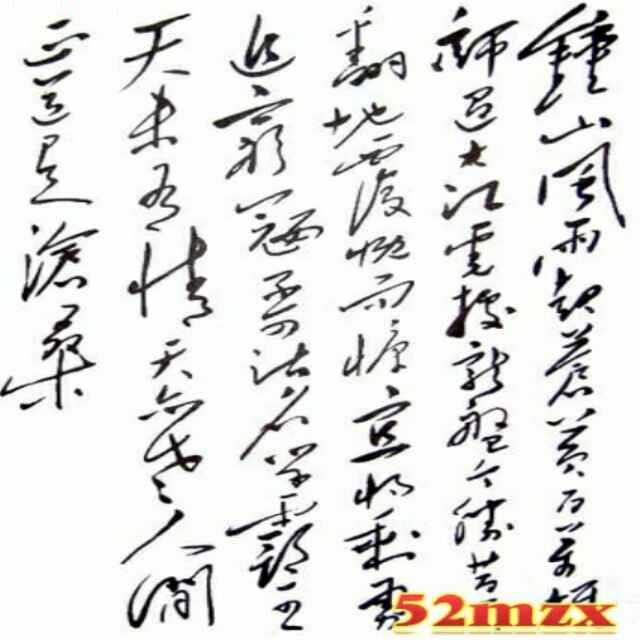 鍾山風雨起蒼黃百萬雄
師過大江虎據龍盤今勝昔
翻地覆慨而慷宜將剩勇
追窮寇不可沽名學霸王
天若有情天亦老人間
正道是滄桑
52mzx